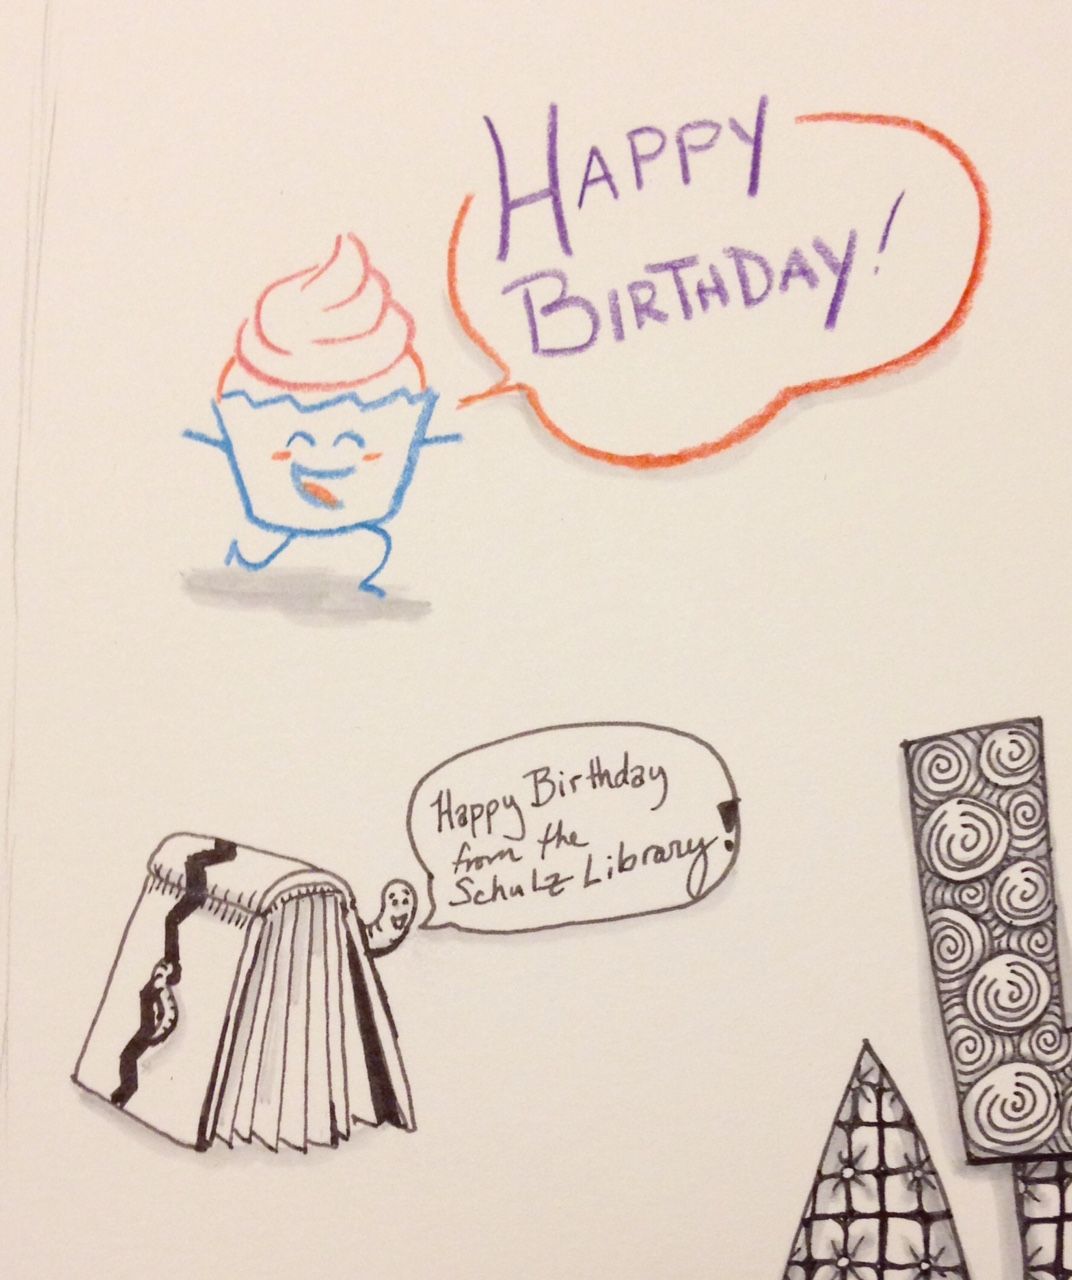 HAPPY
BIRTHDAY!
Happy Birthday
from the
Schulz Library!